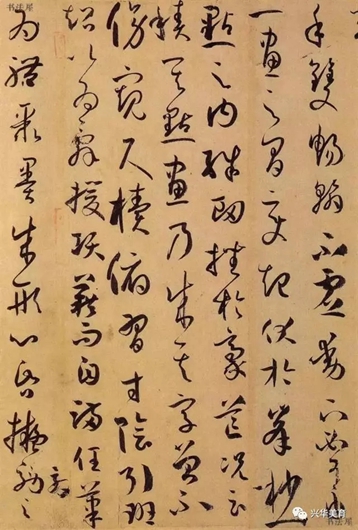 书法星
手雙暢翰不虛動下必有由
一畫之間變起伏於峯杪一
點之内殊衄挫於豪芒況云
積其點畫乃成其字曾不
傍窺尺櫝俯習寸陰引班
超以為辭援項籍而自滿任筆
為體聚墨成形心昏擬效之方
兴华美育